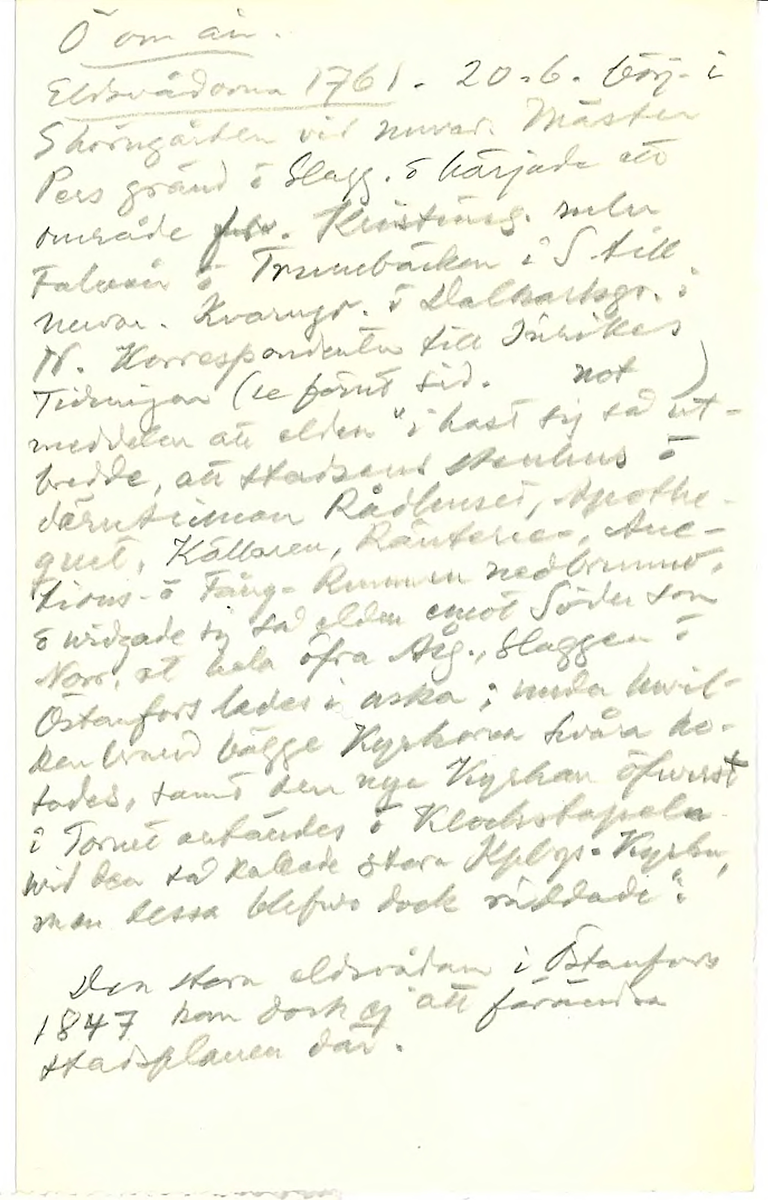 Ö om ån.
Eldsvådorna 1761. 20.6. börj. i
gården vid nuvar. Mäster
Pers gränd i Slagg. o härjade ett
område från Kristineg. mellan
Faluån o Trumbäcken i S till
nuvar. Kvarngr. o Dalkarlsgr. i
N. Korrespondenten till Inrikes
Tidningar (se förut sid. not )
meddelar att elden "i hast sig så ut-
bredde, att stadsens stenhus o
därutinnan Rådhuset, Apothe-
quet, Källaren, Ränteriet, Auc-
tions- o Fång-Rummen nedbrunno,
o widgade sig så elden emot Söder som
Norr, at hela öfra Åsg., Slaggen o
Östanfors lades i aska; under hwil-
ken brand bägge Kyrkorna swåra ho-
tades, samt den nya Kyrkan öfwerst
i Tornet antändes o Klockstapeln
wid den så kallade stora Kpbgs-Kyrka,
men dessa blefwo dock räddade".
Den stora eldsvådan i Östanfors
1847 kom dock ej att förändra
stadsplanen där.